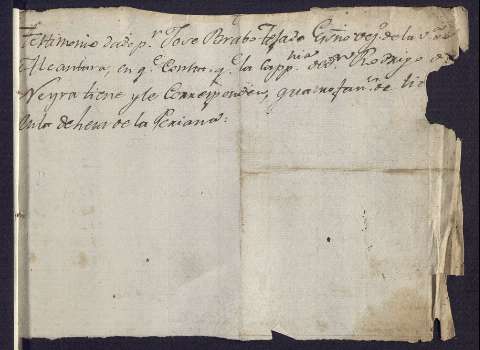 Testimonio dado pr Jose Brabo Tejado Essno de
Alcantara, en qe Consta qe la Capphnia de Dn Rodrigo de
Neyra tiene y le Corresponden, quatro fans de
en la deheza de la Periana: